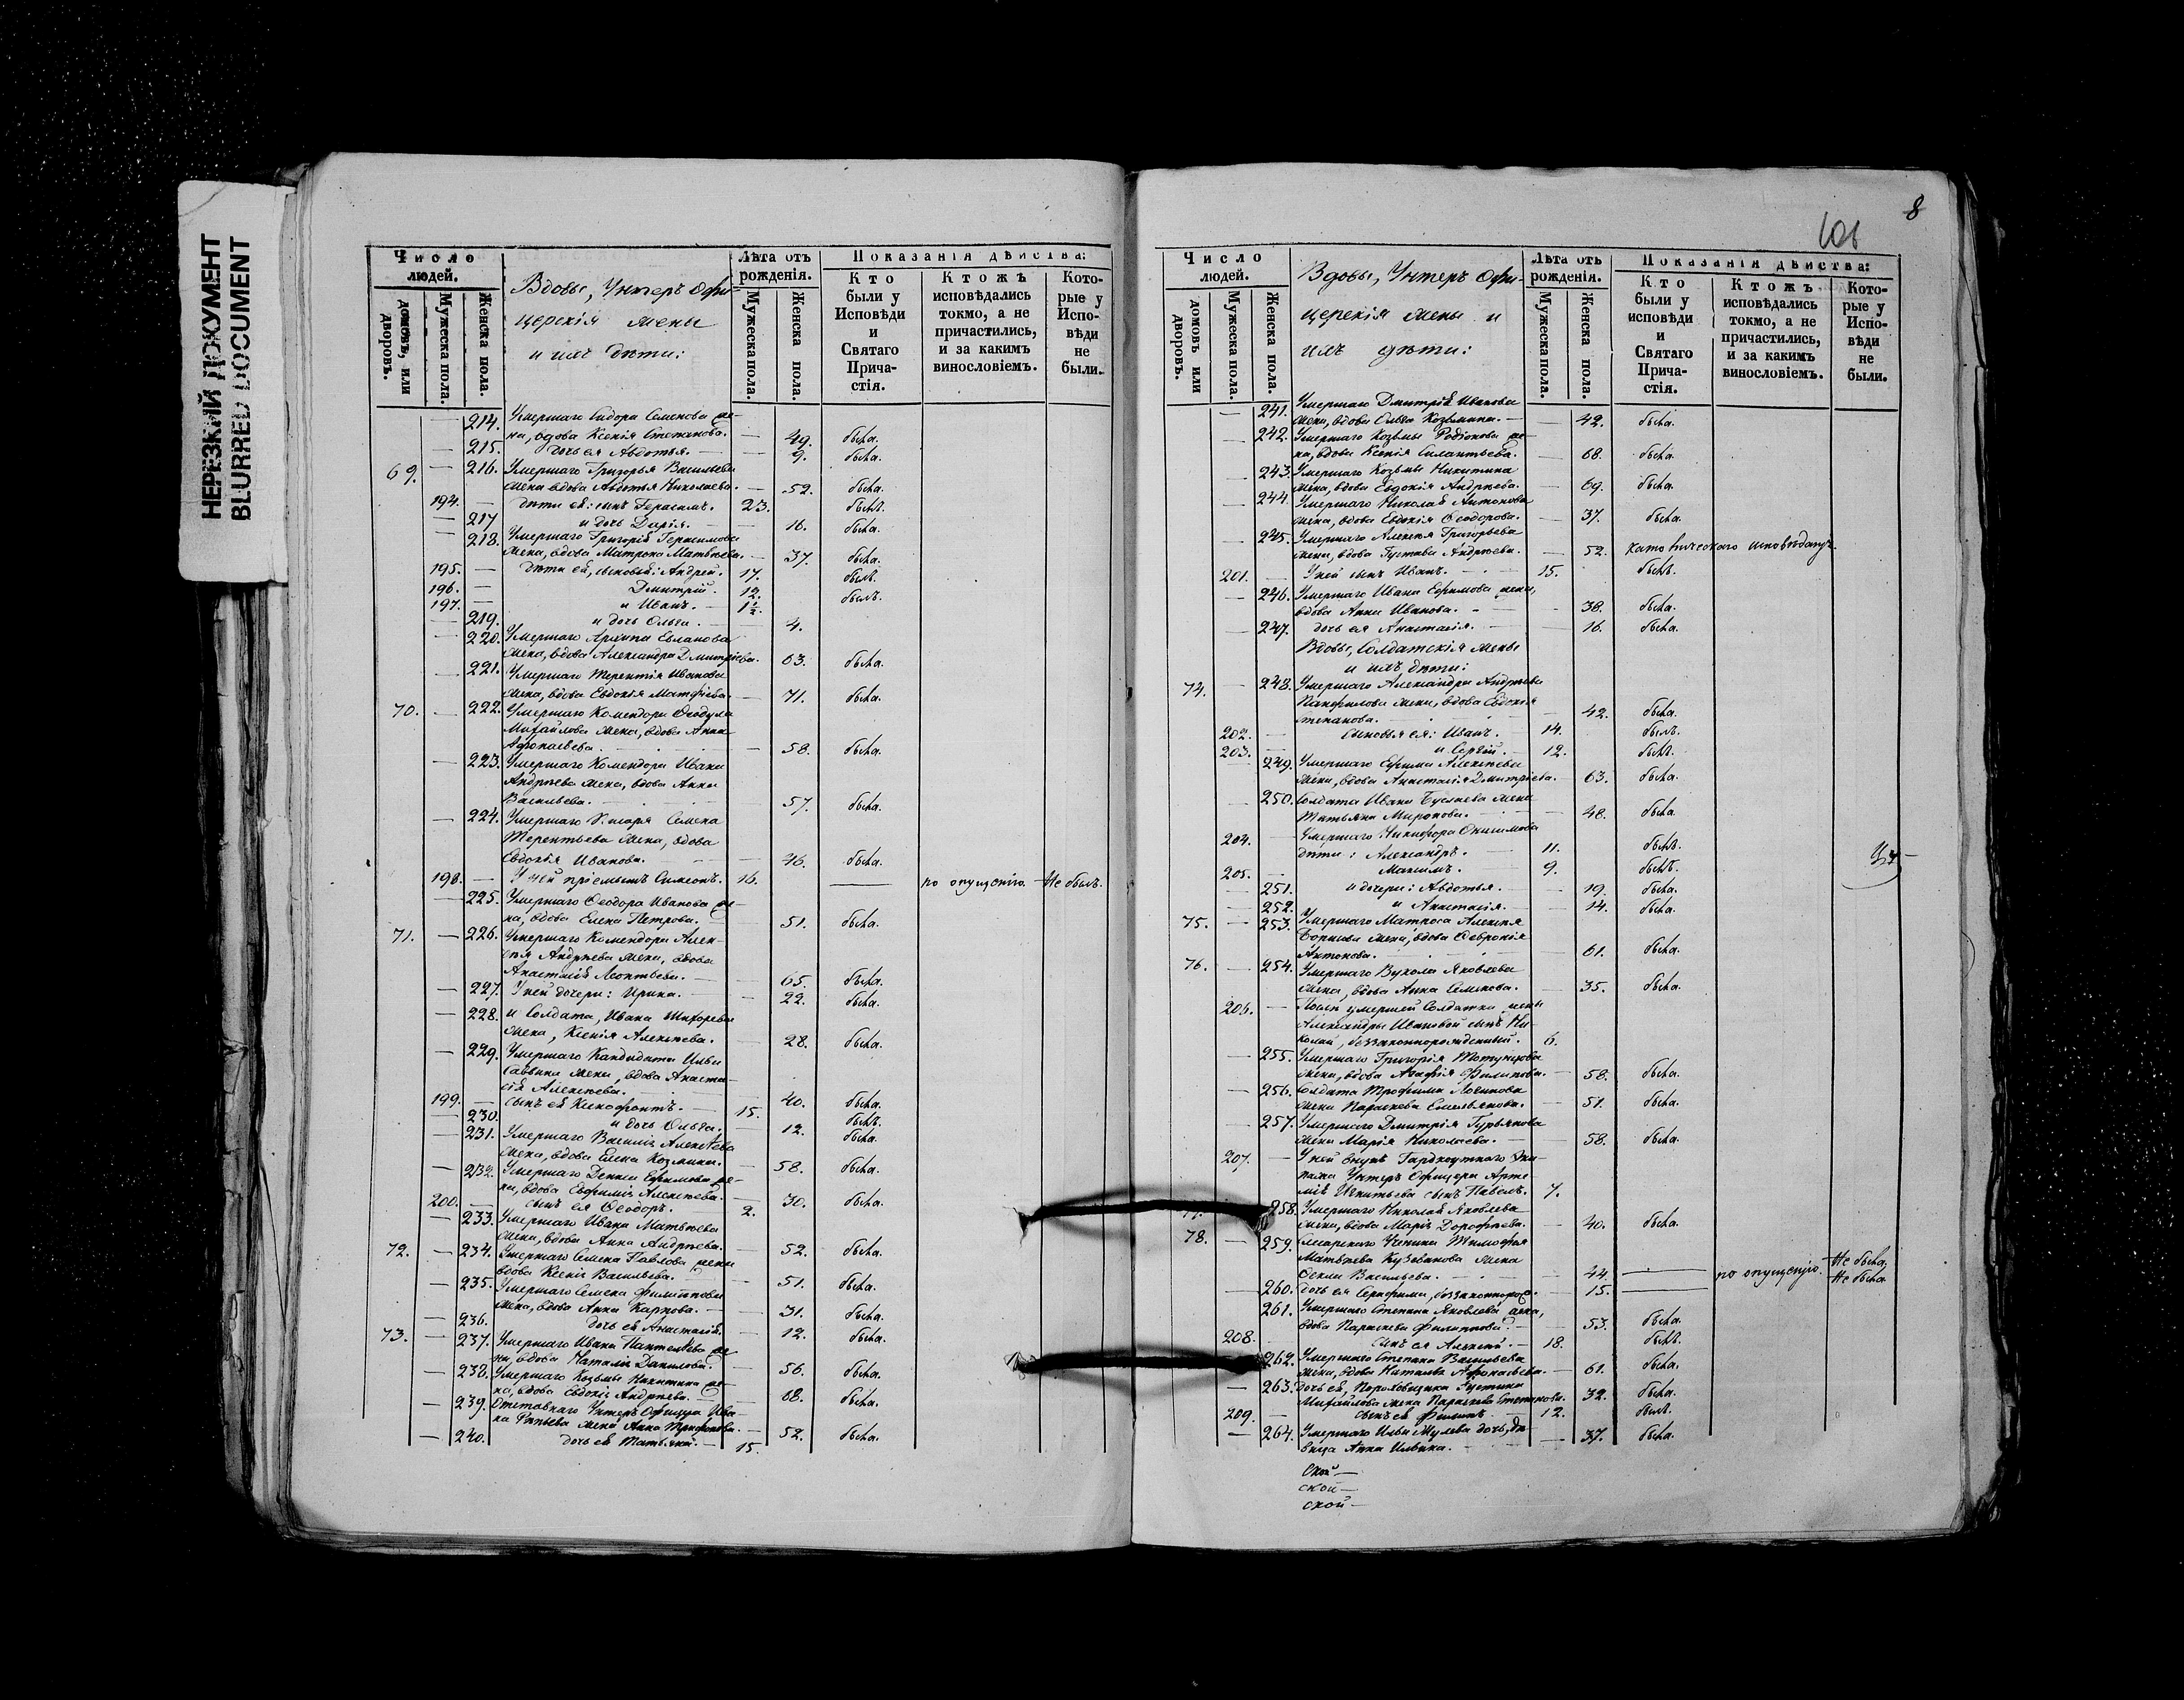 НЕРЕЗКИЙ ДОКУМЕНТ
BLURRED DOCUMENT
Число людей.
домовъ, или дворовъ.
Мужеска пола.
Женска пола.
Вдовы, Унтеръ Офи-
церскія жены
и ихъ дѣти:
Лѣта отъ рожденія.
Мужеска пола.
Женска пола.
Показанія дѣйства:
Кто были у Исповѣди и Святаго Прича-стія.
Ктожъ исповѣдались токмо, а не причастились, и за какимъ винословіемъ.
Кото-рые у Испо-вѣди не были.
— 214. Умершаго Сидора Семенова же-
на, вдова Ксенія Степанова. — 49. была.
— 215. дочь ея Авдотья. — 9. была.
69. — 216. Умершаго Григорья Васильева
жена вдова Авдотья Николаева. — 52. была.
194. — дѣти ея: сынъ Герасимъ. 23. былъ.
— 217 и дочь Дарія. — 16. была.
218. Умершаго Григорія Герасимова
жена, вдова Матрона Матвѣева. — 37. была.
195. — дѣти ея, сыновья: Андрей. 17. былъ.
196. — Дмитрій. 12. былъ.
197. — и Иванъ. — 1½.
— 219. и дочь Ольга. — 4.
— 220. Умершаго Архипа Евланова
жена, вдова Александра Дмитріева. 63. была.
— 221. Умершаго Терентія Иванова
жена, вдова Евдокія Матфіева. — 71. была.
70. — 222. Умершаго Комендора Феодула
Михайлова жена, вдова Анна
Афонасьева. — 58. была.
— 223. Умершаго Комендора Ивана
Андрѣева жена, вдова Анна
Васильева. 57. была.
— 224. Умершаго Писаря Семена
Терентьева жена, вдова
Евдокія Иванова. — 46. была.
198. — У ней пріемышъ Симеонъ. 16. — по опущенію. Не былъ.
— 225. Умершаго Феодора Иванова же-
на, вдова Елена Петрова. 51. была.
71. — 226. Умершаго Комендора Алек-
сѣя Андрѣева жена, вдова
Анастасія Леонтьева. — 65. была.
— 227. У ней дочери: Ирина. — 22. была.
— 228. и Солдата, Ивана
жена, Ксенія Алексѣева. — 28. была.
— 229. Умершаго Кандидата Ильи
Саввина жена, вдова Анаста-
сія Алексѣева. 40. была.
199. — сынъ ея Ксенофонтъ. — 15. былъ.
— 230. и дочь Ольга. — 12. была.
— 231. Умершаго Василія Алексѣева
жена, вдова Елена Козмина. — 58. была.
— 232. Умершаго Дениса Ефимова же-
на, вдова Евфимія Алексѣева. — 30. была.
200. — сынъ ея Феодоръ. 2.
— 233. Умершаго Ивана Матвѣева
жена, вдова Анна Андрѣева. — 52. была.
72. — 234. Умершаго Семена Павлова жена
вдова Ксенія Васильева. — 51. была.
— 235. Умершаго Семена Филиппова
жена, вдова Анна Карпова. — 31. была.
— 236. дочь ея Анастасія. — 12. была.
73. — 237. Умершаго Ивана Пантелѣева же-
на, вдова Наталія Данилова. — 56. была.
— 238. Умершаго Козьмы Никитина же-
на, вдова Евдокія Андрѣева. — 68. была.
— 239. Отставнаго Унтеръ Офицера Ива-
на жена Анна Трифонова. — 52. была.
— 240. дочь ея Татьяна. — 15.
8
101
Число людей.
домовъ или дворовъ.
Мужеска пола.
Женска пола.
Вдовы, Унтеръ Офи-
церскія жены и
ихъ дѣти:
Лѣта отъ рожденія.
Мужеска пола.
Женска пола.
Показанія дѣйства:
Кто были у исповѣди и Святаго Прича-стія.
Ктожъ исповѣдались токмо, а не причастились, и за какимъ винословіемъ.
Кото-рые у Испо-вѣди не были.
— 241. Умершаго Дмитрія Иванова
жена, вдова Ольга Козьмина. — 42. была.
— 242. Умершаго Козьмы Родіонова же-
на, вдова Ксенія Силантьева. — 68. была.
— 243. Умершаго Козьмы Никитина
жена, вдова Евдокія Андрѣева. — 69. была.
— 244. Умершаго Николая Антонова
жена, вдова Евдокія Феодорова. — 37. была.
— 245. Умершаго Алексѣя Григорьева
жена, вдова Густава Андрѣева. — 52. католическаго исповѣданія.
201. — У ней сынъ Иванъ. — 15. былъ.
— 246. Умершаго Ивана Ефимова жена,
вдова Анна Иванова. — 38. была.
— 247. дочь ея Анастасія. — 16. была.
Вдовы, Солдатскія жены
и ихъ дѣти:
74. — 248. Умершаго Александра Андрѣева
Панфилова жена, вдова Евдокія
Степанова. — 42. была.
202. — сыновья ея: Иванъ. — 14. былъ.
203. — и Сергій. — 12. былъ.
— 249. Умершаго Ефима Алексѣева
жена, вдова Анастасія Дмитріева. 63. была.
— 250. Солдата Ивана жена
Татьяна Миронова. — 48. была.
204. — Умершаго Никифора Онисимова
дѣти: Александръ. — 11. былъ.
205. — Максимъ. — 9. былъ.
— 251. и дочери: Авдотья. — 19. была.
— 252. и Анастасія. — 14. была.
75. — 253. Умершаго Матроса Алексѣя
жена, вдова Феврокія
Антонова. — 61. была.
76. — 254. Умершаго Вукола Яковлева
жена, вдова Анна Семенова. — 35. была.
206. — Послѣ умершей Солдатки, жены
Александры Ивановой сынъ Ни-
колай, беззаконнорожденный. 6.
— 255. Умершаго Григорія
жена, вдова Агафія Филипова. — 58. была.
— 256. Солдата Трофима Логинова
жена Параскева Емельянова. — 51. была.
— 257. Умершаго Дмитрія Гурьянова
жена Марія Николаева. — 58. была.
207. — У ней внукъ Гардкоутнаго Эки-
пажа Унтеръ Офицера Арте-
мія Игнатьева сынъ Павелъ. 7.
77. 258. Умершаго Николая Яковлева
жена, вдова Марія Дорофѣева. — 40. была.
78. — 259. Слесарскаго Ученика Тимофея
Матвѣева жена
Фекла Васильева. — 44. — по опущенію. Не была.
— 260. Дочь ея Серафима, беззаконнорож. — 15. — Не была.
261. Умершаго Степана Яковлева жена,
вдова Параскева Филиппова. — 53. была.
208. — сынъ ея Алексѣй. — 18. былъ.
262. Умершаго Степана Васильева
жена, вдова Наталья Афонасьева. — 61. была.
— 263. дочь ея, Пороховщика Устина
Михайлова жена Параскева Степанова. 32. была.
209. — сынъ ея Филипъ. — 12. былъ.
— 264. Умершаго Ильи дочь, дѣ-
вица Анна Ильина. — 37. была.
ской —
ской —
ской —